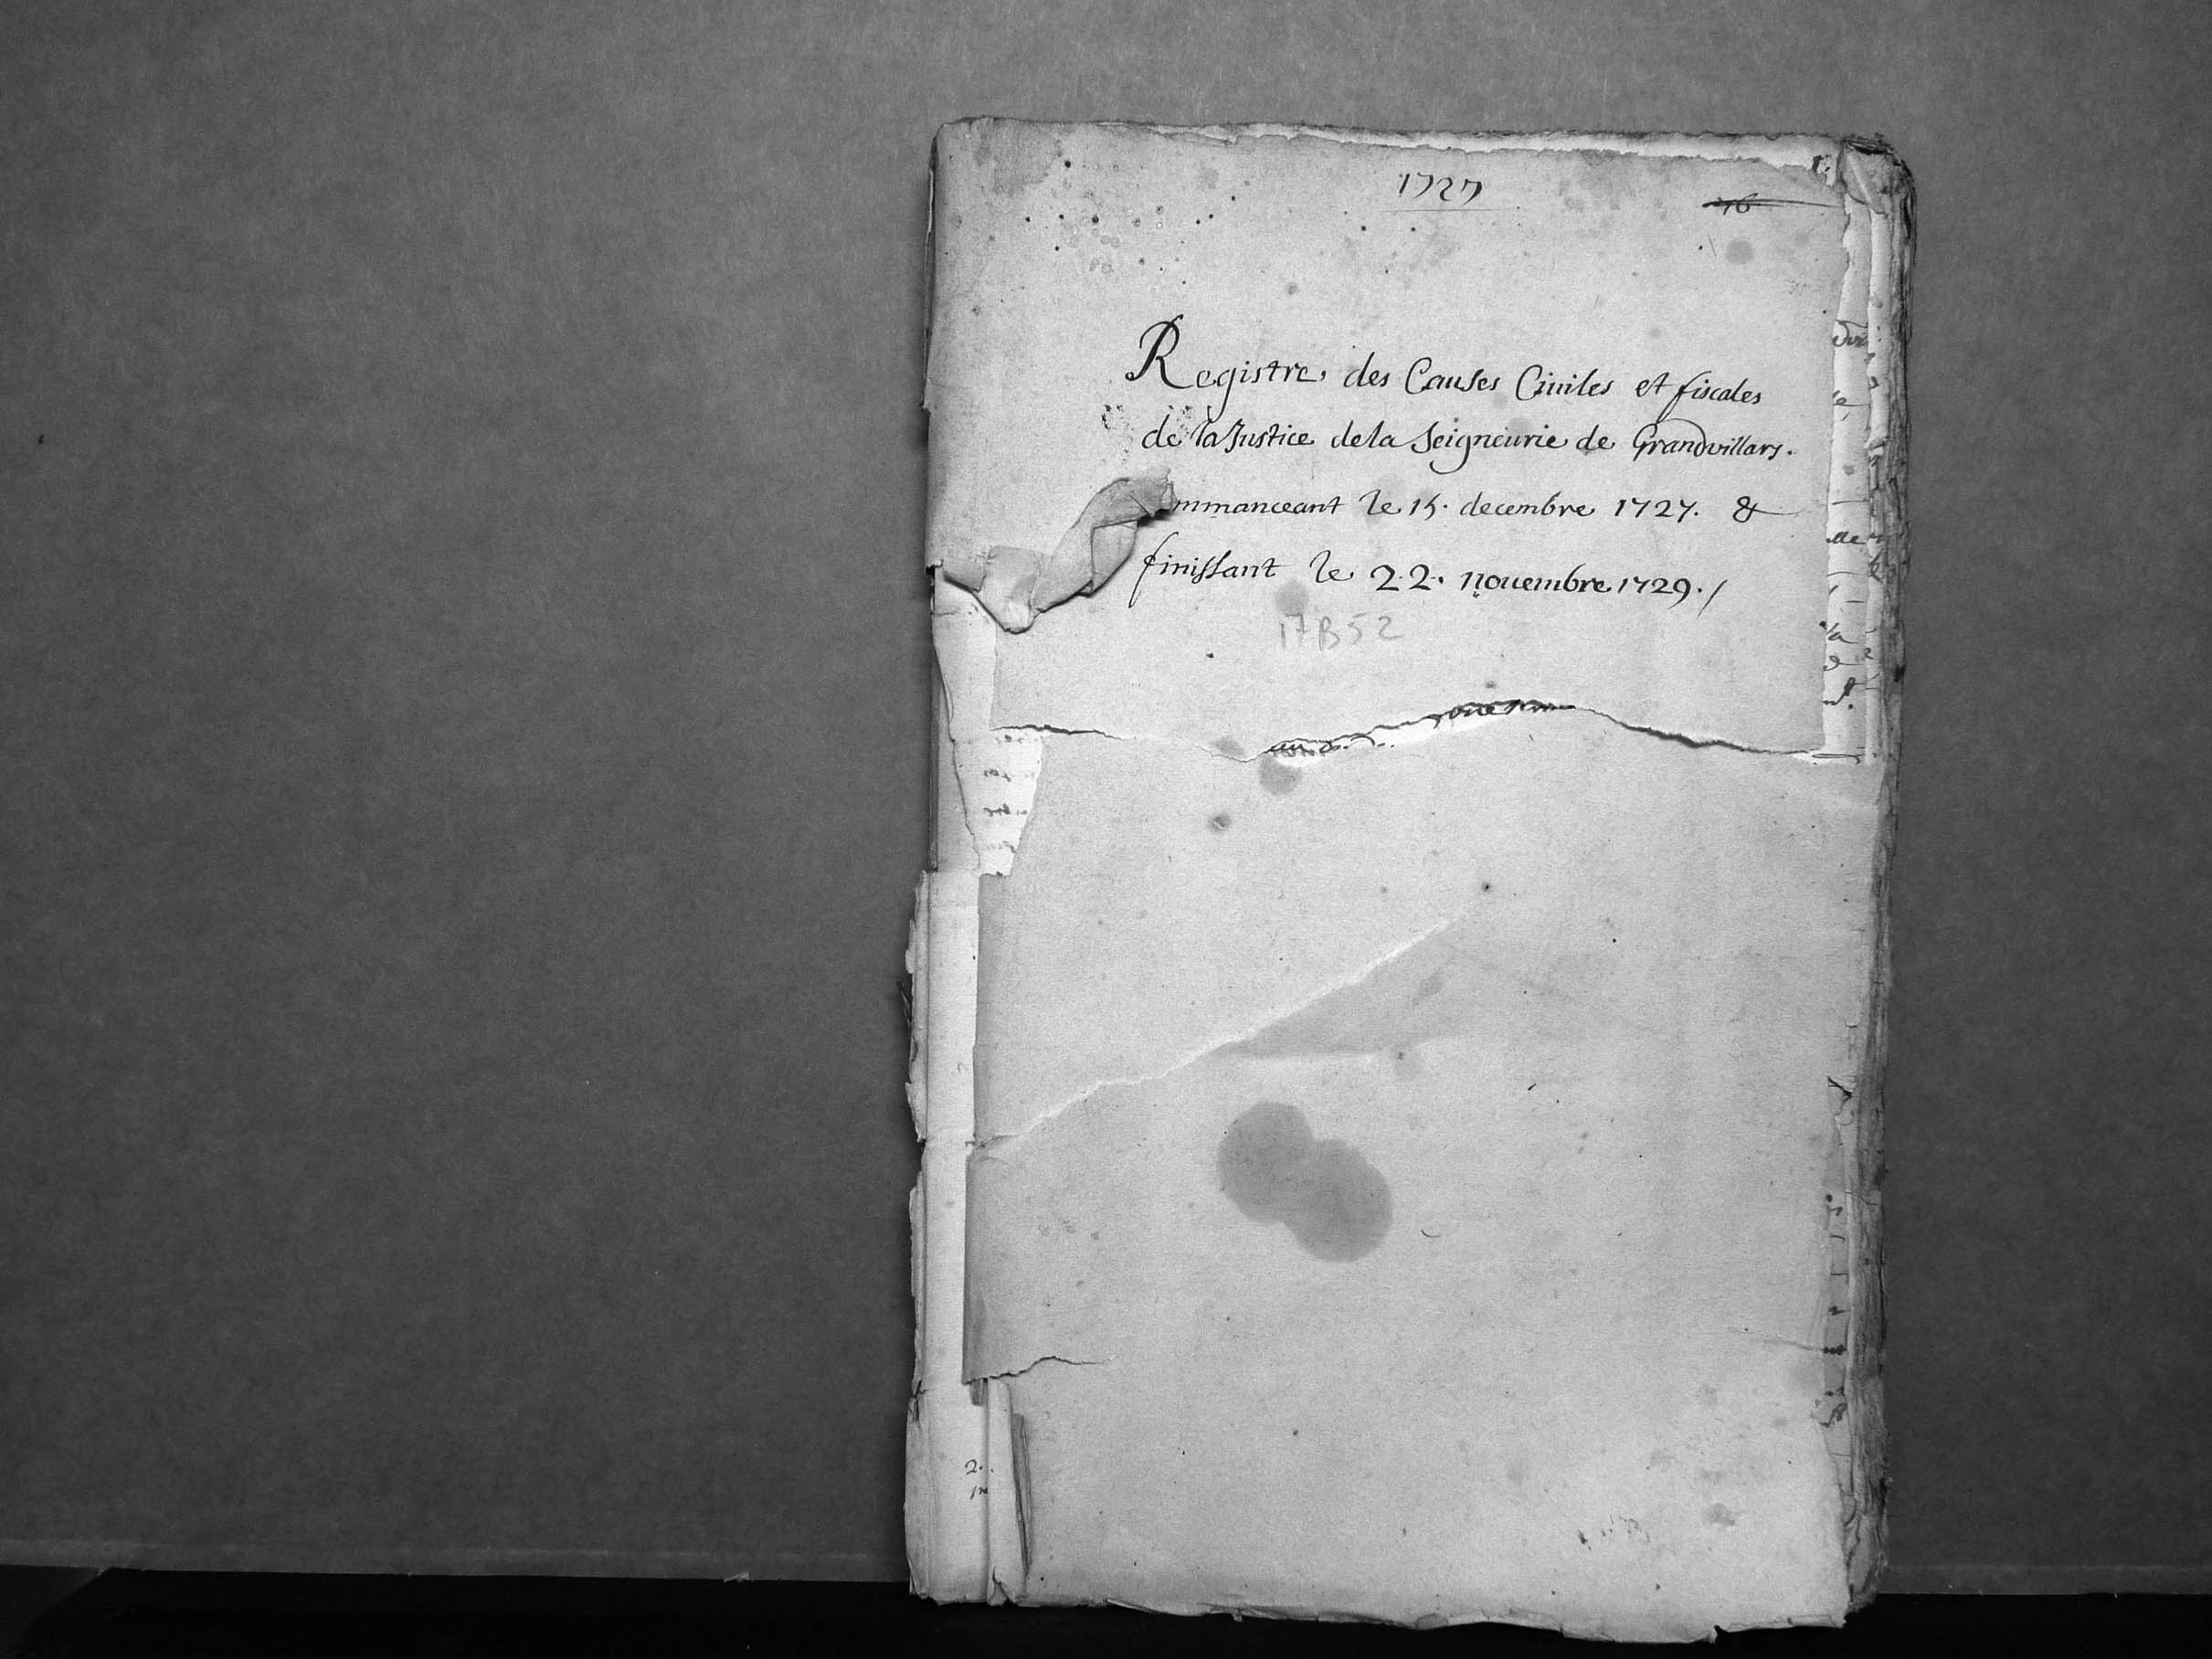 1727
16
Registre des Causes Ciuiles et fiscales
de la Justice dela Seigneurie de Grandvillars.
mmanceant le 15. decembre 1727. &
finissant le 22. nouembre 1729. /
17B52